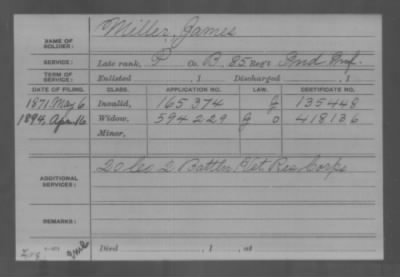 NAME OF SOLDIER: Miller, James
SERVICE: Late rank, P Co. B, 85 Reg't Ind Inf.
TERM OF SERVICE: Enlisted , 1 Discharged , 1
DATE OF FILING. CLASS. APPLICATION NO. LAW. CERTIFICATE NO.
1871, May 6 Invalid, 165374 G 135448
1894, Apr 16 Widow, 594229 G D 418136
Minor,
ADDITIONAL SERVICES: 20 Co 2 Battln Vet Res Corps
REMARKS:
Died , 1 , at